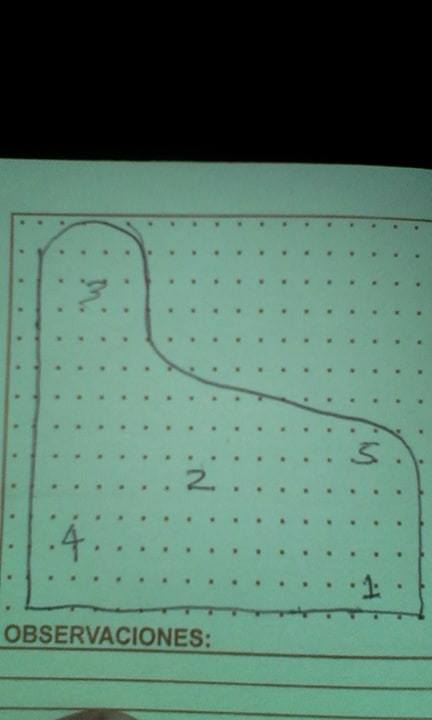 3
5
2
4
1
OBSERVACIONES: